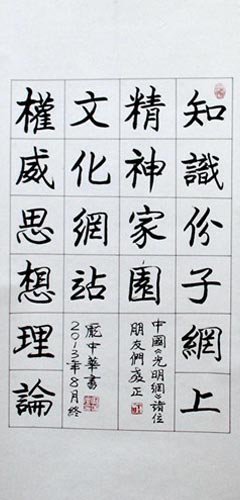 知識份子網上
精神家園
中國《光明網》諸位
朋友們愛正
文化網站
龐中華書
2013年8月終
權威思想理論